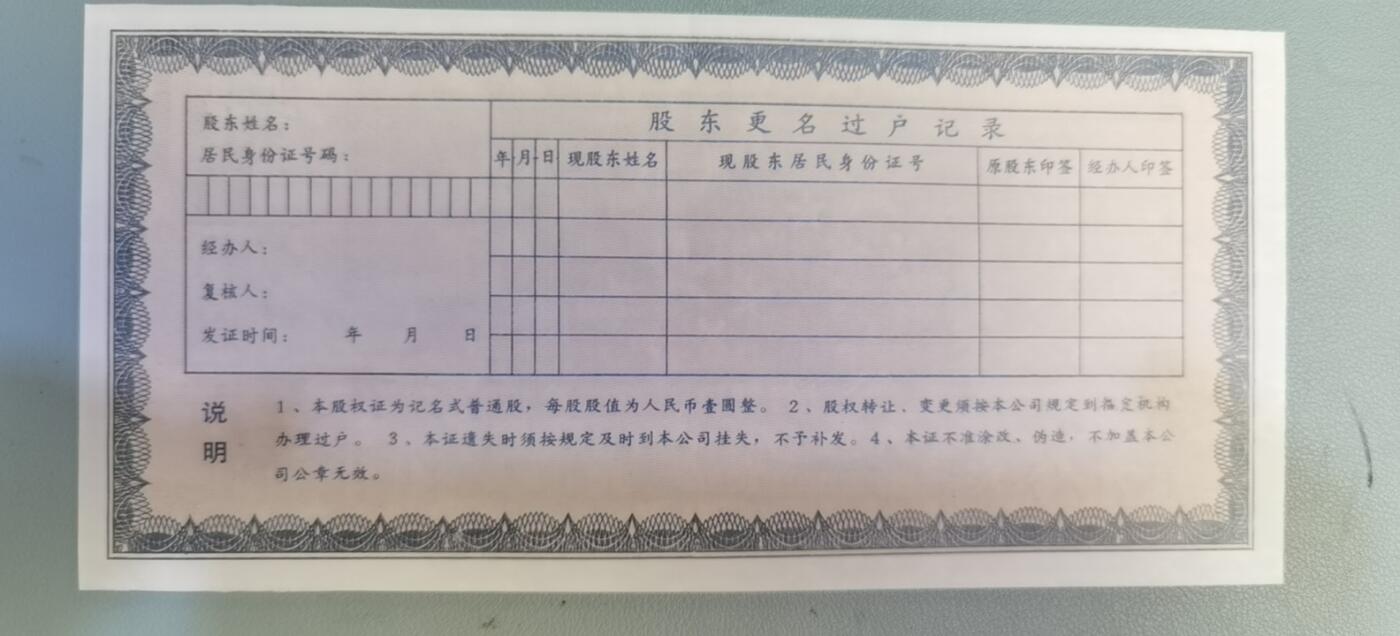 股东姓名：
居民身份证号码：
经办人：
复核人：
发证时间： 年 月 日
股东更名过户记录
年 月 日 现股东姓名 现股东居民身份证号 原股东印签 经办人印签
说明
1、本股权证为记名式普通股，每股股值为人民币壹圆整。 2、股权转让、变更须按本公司规定到指定机构
办理过户。 3、本证遗失时须按规定及时到本公司挂失，不予补发。4、本证不准涂改、伪造，不加盖本公
司公章无效。